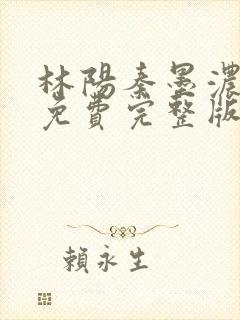 林陽秦墨濃
免費完整版
賴永生